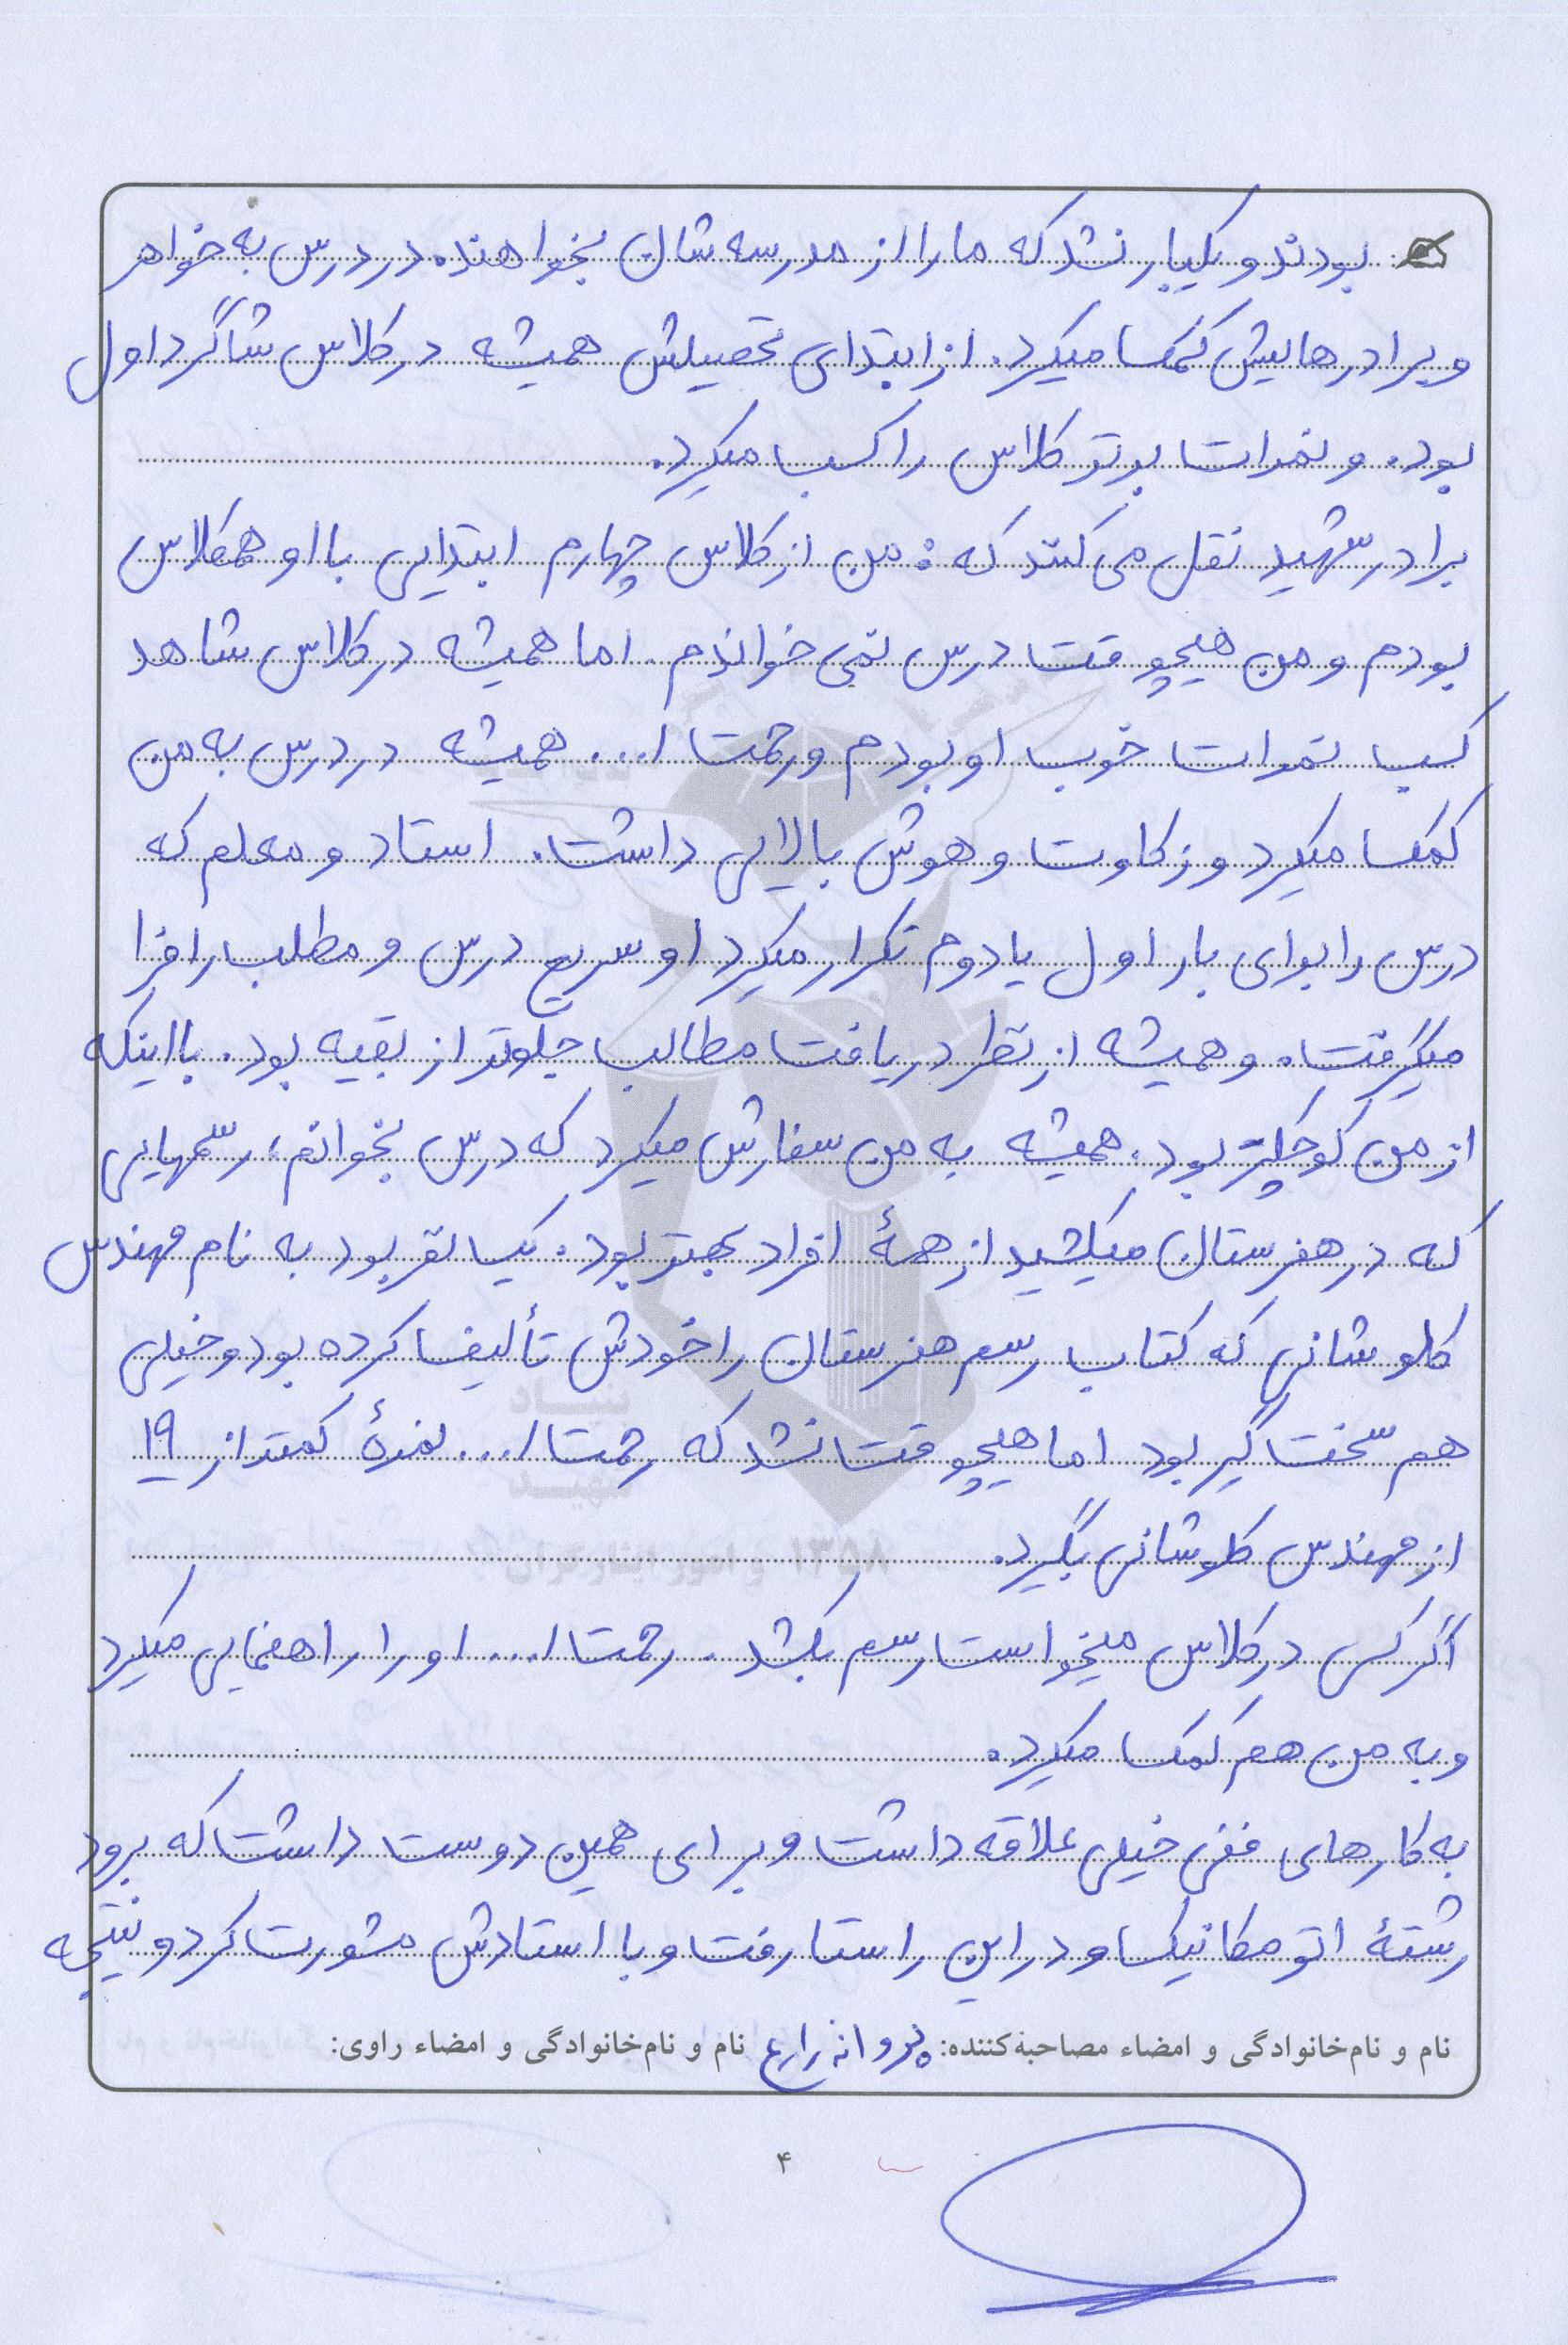 بودند و یکبار نشد که ما را از مدرسه شان بخواهند. در درس به خواهر
و برادرهایش کمک میکرد. از ابتدای تحصیلش همیشه در کلاس شاگرد اول
بود. و نمرات برتر کلاس را کسب میکرد.
برادر شهید نقل می کند که: من از کلاس چهارم ابتدایی با او همکلاس
بودم و من هیچوقت درس نمی خواندم. اما همیشه در کلاس شاهد
کسب نمرات خوب او بودم و رحمت ا... همیشه در درس به من
کمک میکرد و زکاوت و هوش بالایی داشت. استاد و معلم که
درس را برای بار اول یا دوم تکرار میکرد او سریع درس و مطلب را فرا
میگرفت. و همیشه از نظر دریافت مطالب جلوتر از بقیه بود. با اینکه
از من کوچکتر بود. همیشه به من سفارش میکرد که درس بخوانم، رسمهایی
که در هنرستان میکشید از همهٔ افراد بهتر بود. یک نفر بود به نام مهندس
کلوشانی که کتاب رسم هنرستان را خودش تألیف کرده بود و خیلی
هم سخت گیر بود اما هیچوقت نشد که رحمت ا... نمرهٔ کمتر از ۱۹
از مهندس کلوشانی بگیرد.
اگر کسی در کلاس میخواست رسم بکشد. رحمت ا... او را راهنمایی میکرد
و به من هم کمک میکرد.
به کارهای فنی خیلی علاقه داشت و برای همین دوست داشت که برود
رشتهٔ اتومکانیک و در این راستا رفت و با استادش مشورت کرد و نتیجه
نام و نام‌خانوادگی و امضاء مصاحبه‌کننده: پروانه زارع نام و نام‌خانوادگی و امضاء راوی:
۴